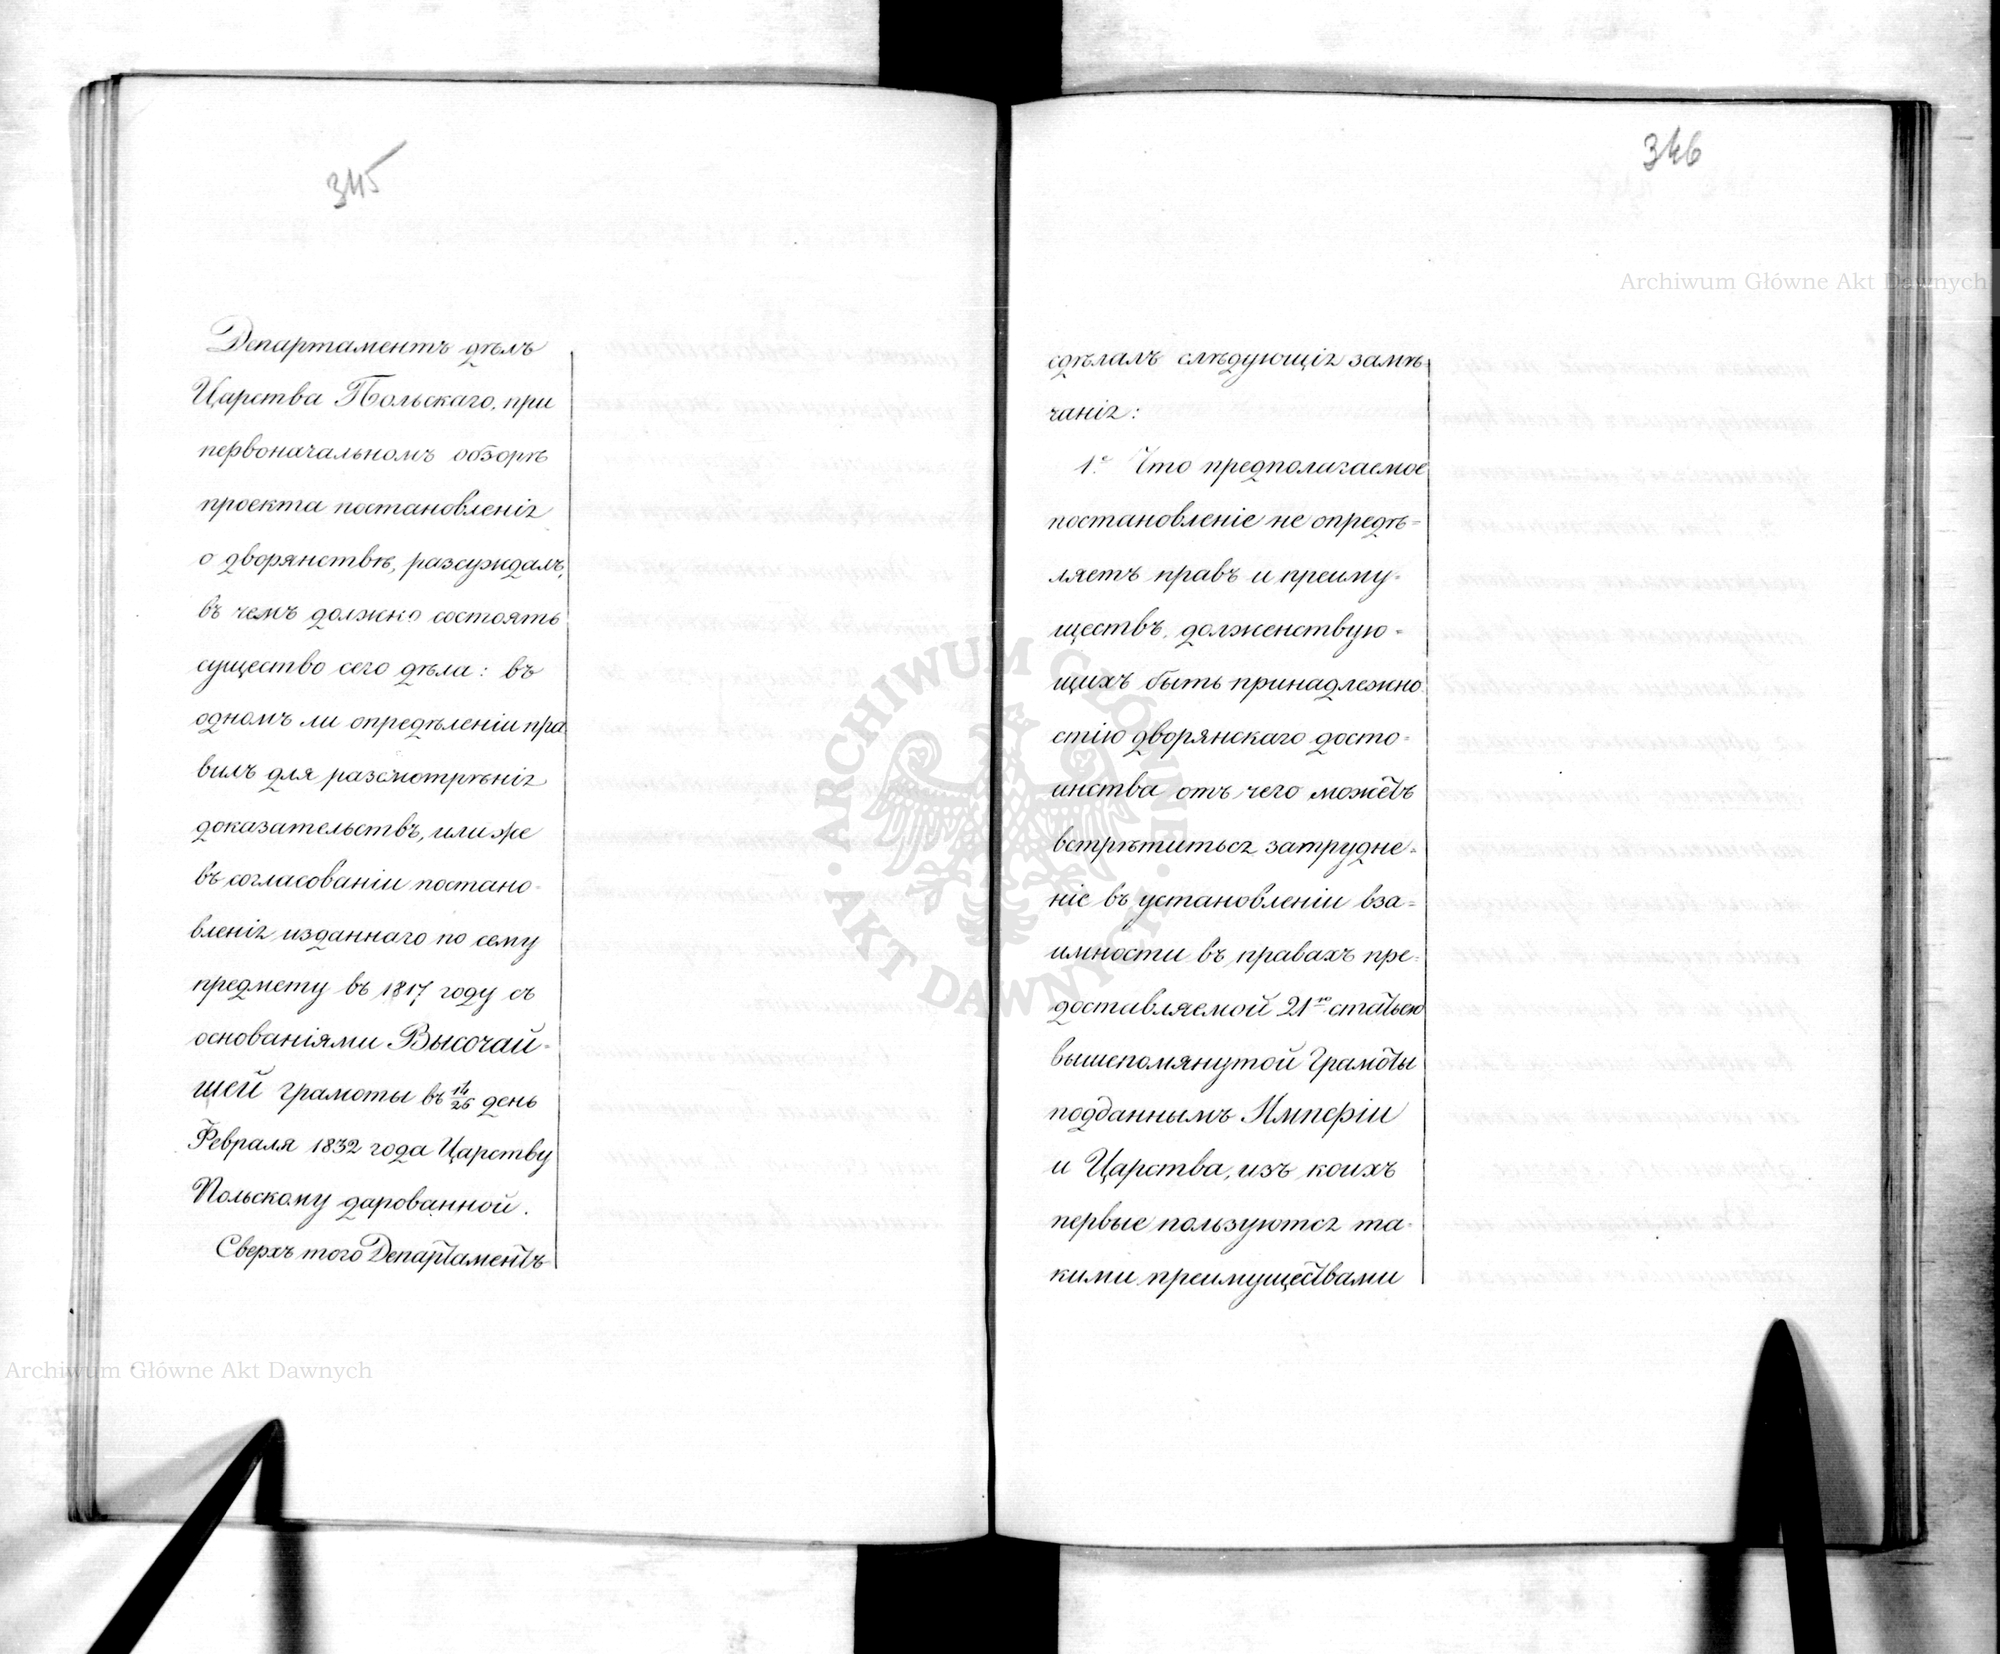 345
Департаментъ дѣлъ
Царства Польскаго, при
первоначальномъ обзорѣ
проекта постановленія
о дворянствѣ, разсуждалъ,
въ чемъ должно состоять
существо сего дѣла: въ
одномъ ли опредѣленіи пра
вилъ для разсмотрѣнія
доказательствъ, или же
въ согласованіи постано-
вленія изданнаго по сему
предмету въ 1817 году съ
основаніями Высочай=
шей грамоты въ 14/26 день
Февраля 1832 года Царству
Польскому дарованной.
Сверхъ того Департаментъ
346
сдѣлалъ слѣдующія замѣ-
чанія:
1.е Что предполагаемое
постановленіе не опредѣ=
ляетъ правъ и преиму-
ществъ, долженствую=
щихъ быть принадлежно
стію дворянскаго досто=
инства отъ чего можетъ
встрѣтиться затрудне=
ніе въ установленіи вза=
имности въ правахъ пре-
доставляемой 21ю статьею
вышепомянутой Грамоты
подданнымъ Имперіи
и Царства, изъ коихъ
первые пользуются та-
кими преимуществами
Archiwum Główne Akt Dawnych
ARCHIWUM GŁÓWNE AKT DAWNYCH
Archiwum Główne Akt Dawnych